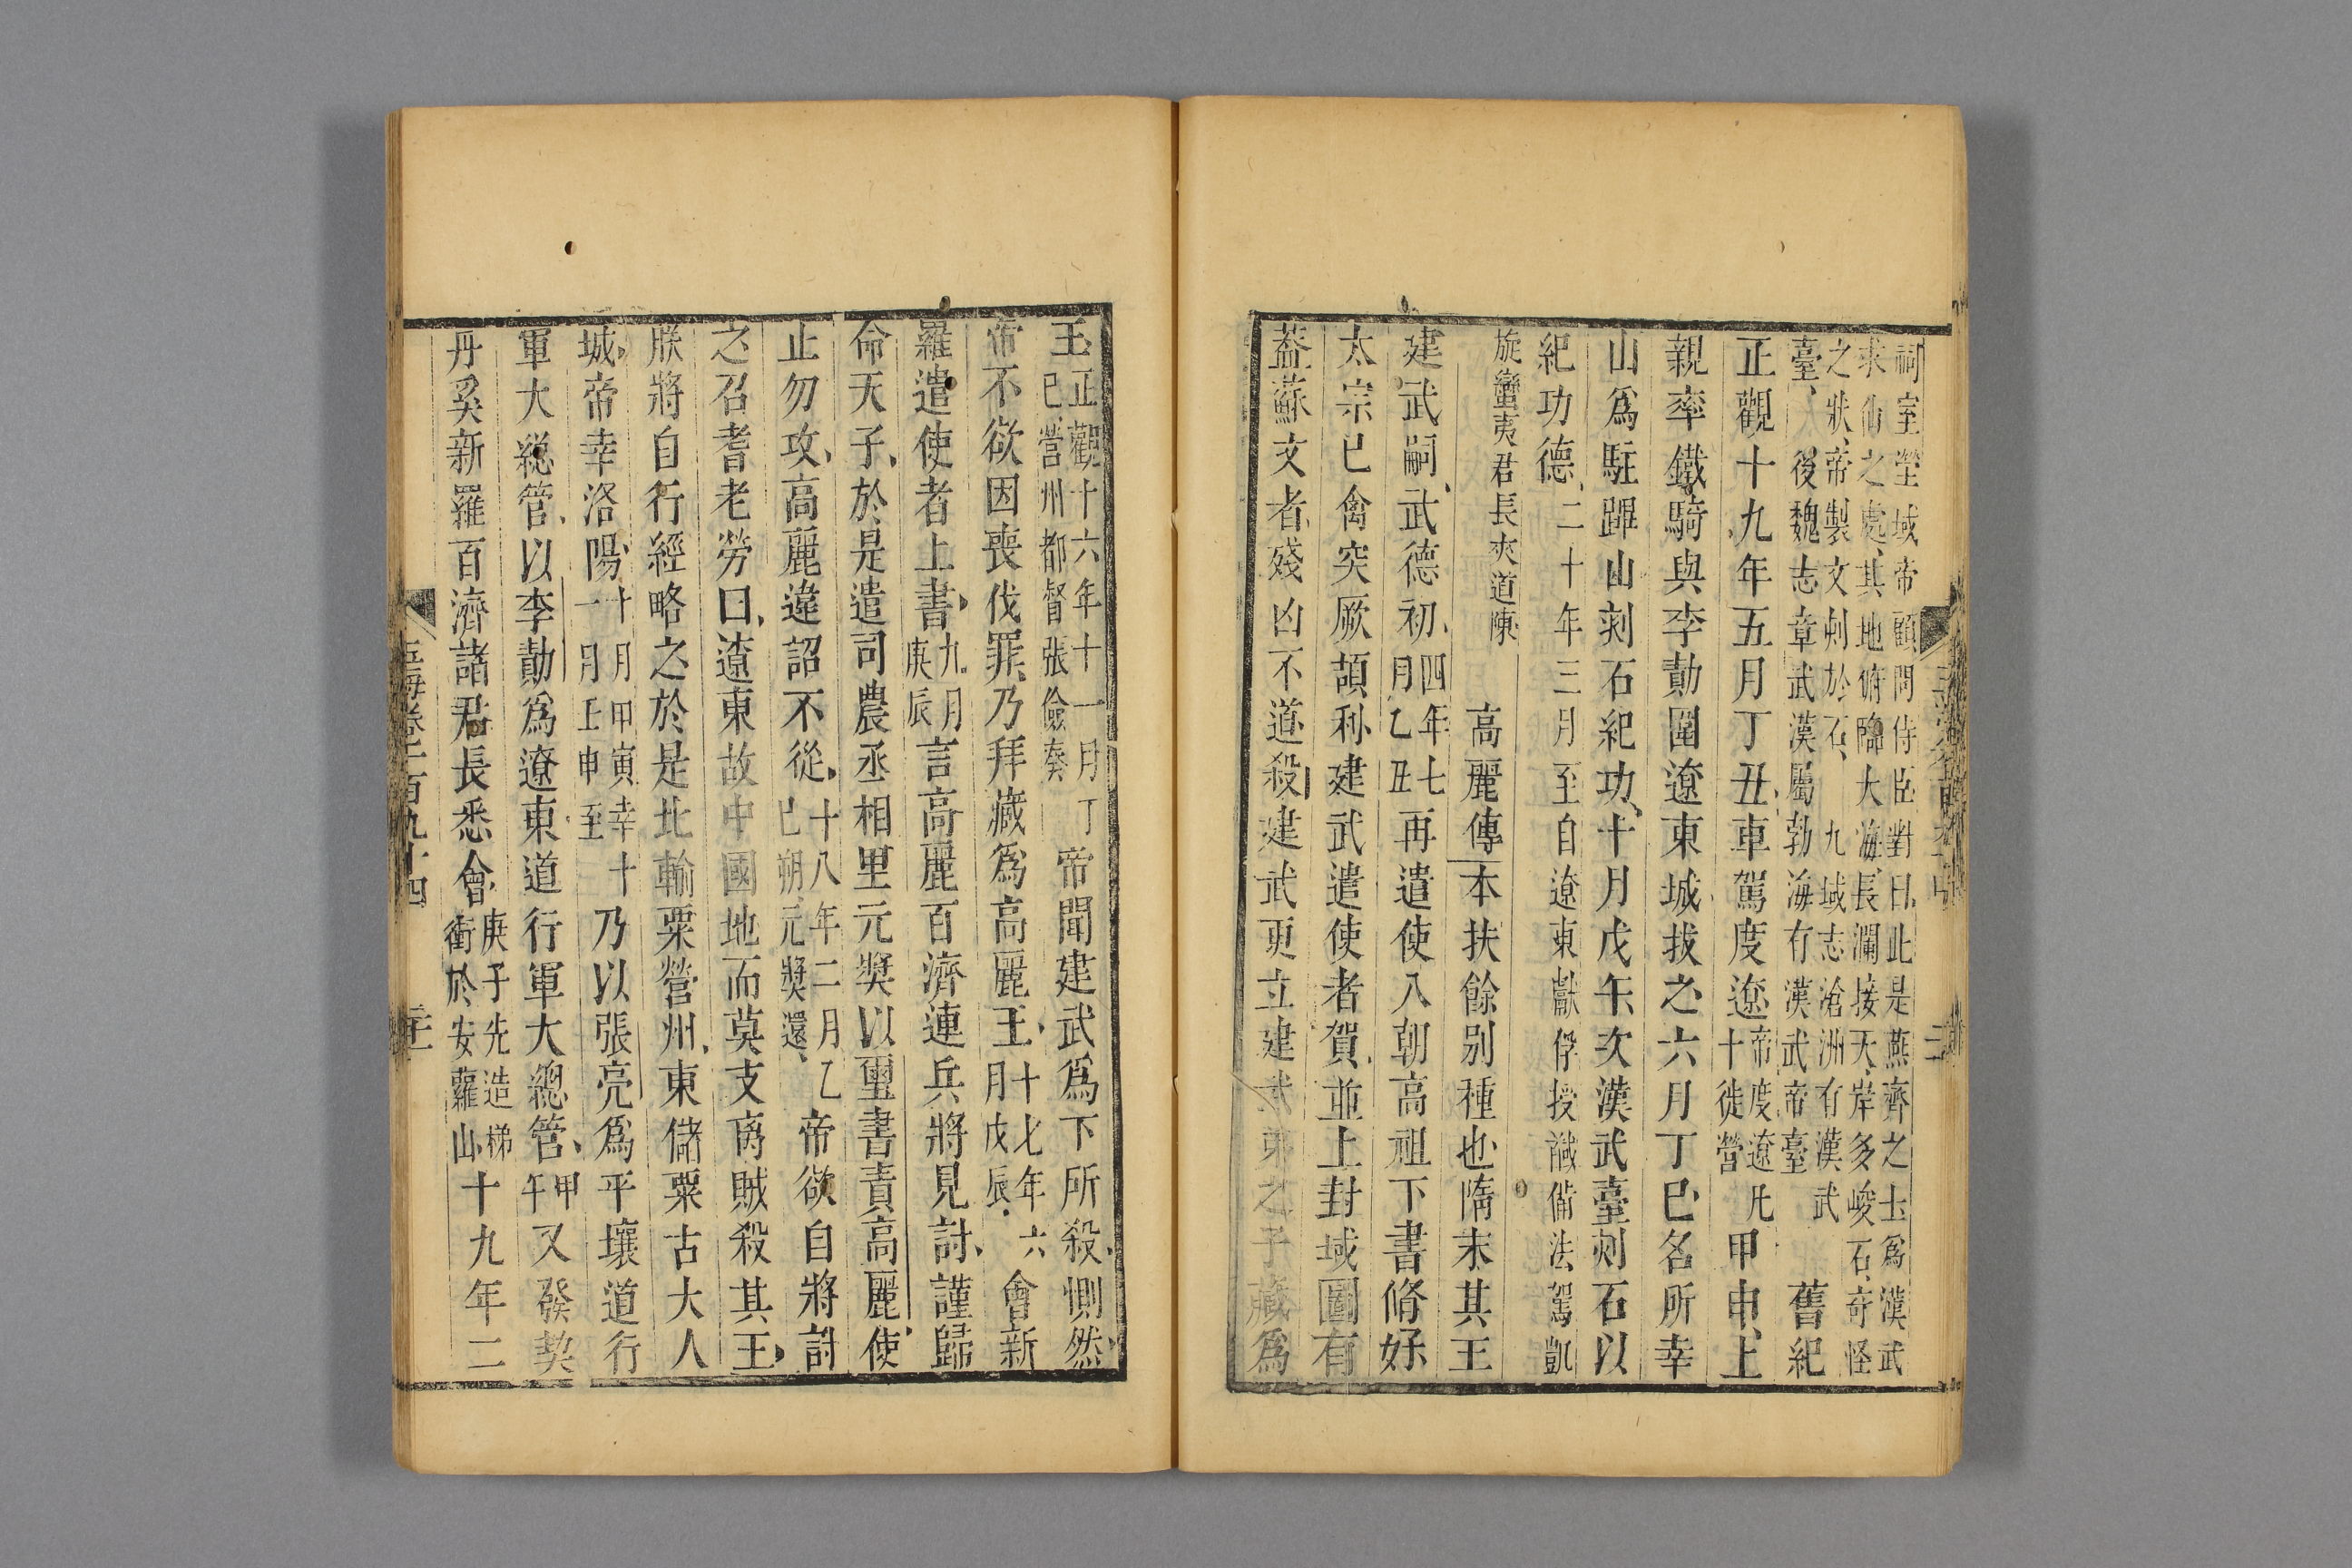 祠室塋域帝顧問侍臣對曰此是燕齊之士爲漢武
求仙之處其地俯臨大海長瀾接天岸多峻石奇怪
之狀帝製文刻於石九域志滄洲有漢武
臺後魏志章武漢屬勃海有漢武帝臺舊紀
正觀十九年五月丁丑車駕度遼帝度遼凡十徙營甲申上
親率鐵騎與李勣圍遼東城拔之六月丁巳名所幸
山爲駐蹕山刻石紀功十月戊午次漢武臺刻石以
紀功德二十年三月至自遼東獻俘授馘備法駕凱
旋蠻夷君長夾道陳高麗傳本扶餘別種也隋末其王
建武嗣武德初四年七月乙丑再遣使入朝高祖下書脩好
太宗已禽突厥頡利建武遣使者賀並上封域圖有
蓋蘇文者殘凶不道殺建武更立建武弟之子藏爲
王正觀十六年十一月丁巳營州都督張儉奏帝聞建武爲下所殺惻然
帝不欲因喪伐罪乃拜藏爲高麗王十七年六月戊辰會新
羅遣使者上書九月庚辰言高麗百濟連兵將見討謹歸
命天子於是遣司農丞相里元奬以璽書責高麗使
止勿攻高麗違詔不從十八年二月乙巳朔元奬還帝欲自將討
之召耆老勞曰遼東故中國地而莫支离賊殺其王
朕將自行經略之於是北輸粟營州東儲粟古大人
城帝幸洛陽十月甲寅幸十一月壬申至乃以張亮爲平壤道行
軍大緫管以李勣爲遼東道行軍大緫管甲午又發契
丹奚新羅百濟諸君長悉會庚子先造梯衝於安蘿山十九年二
玉海卷一百九十四